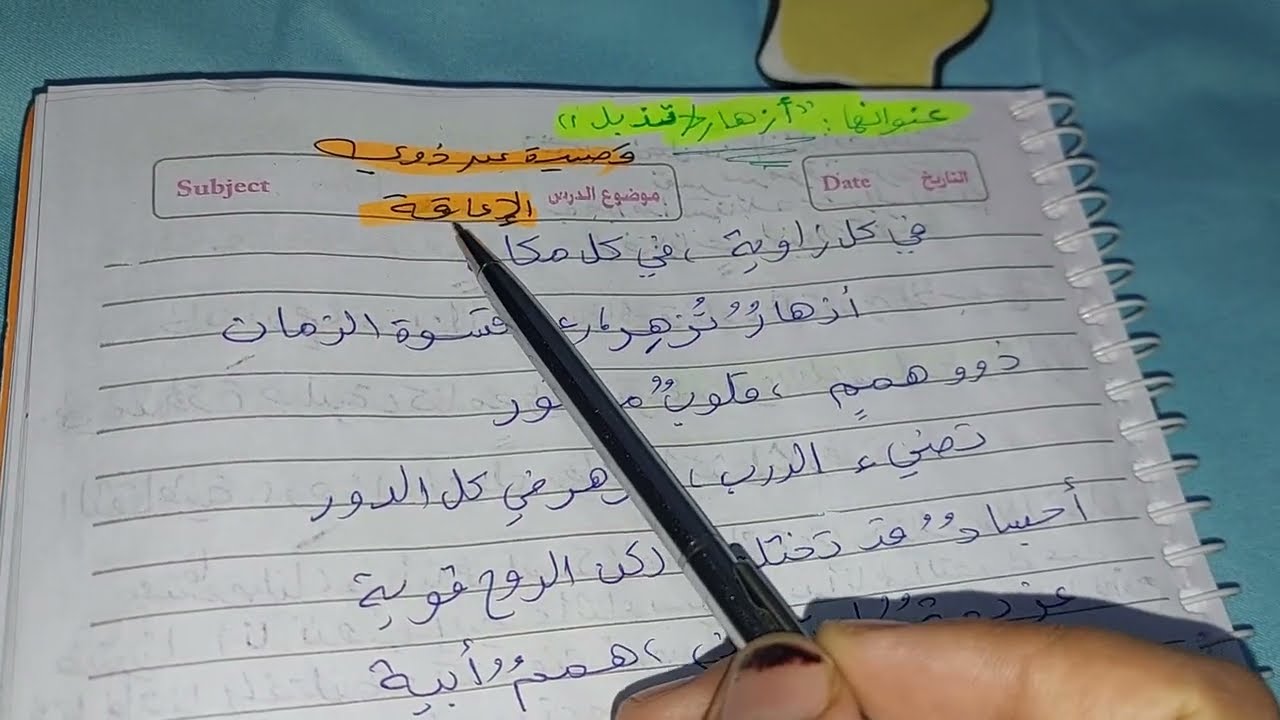 عنوانها: "أزهار لا تذبل"
قصيدة عن ذوي
Subject موضوع الدرس Date التاريخ
الإعاقة
في كل زاويةٍ ، في كل مكا
أزهارٌ تُزهِر قسوة الزمانِ
ذوو هممٍ ، قلوبٌ نور
تضيء الدرب ، في كل الدور
أجسادٌ قد تختل لكن الروح قويةٍ
هممٌ أبية